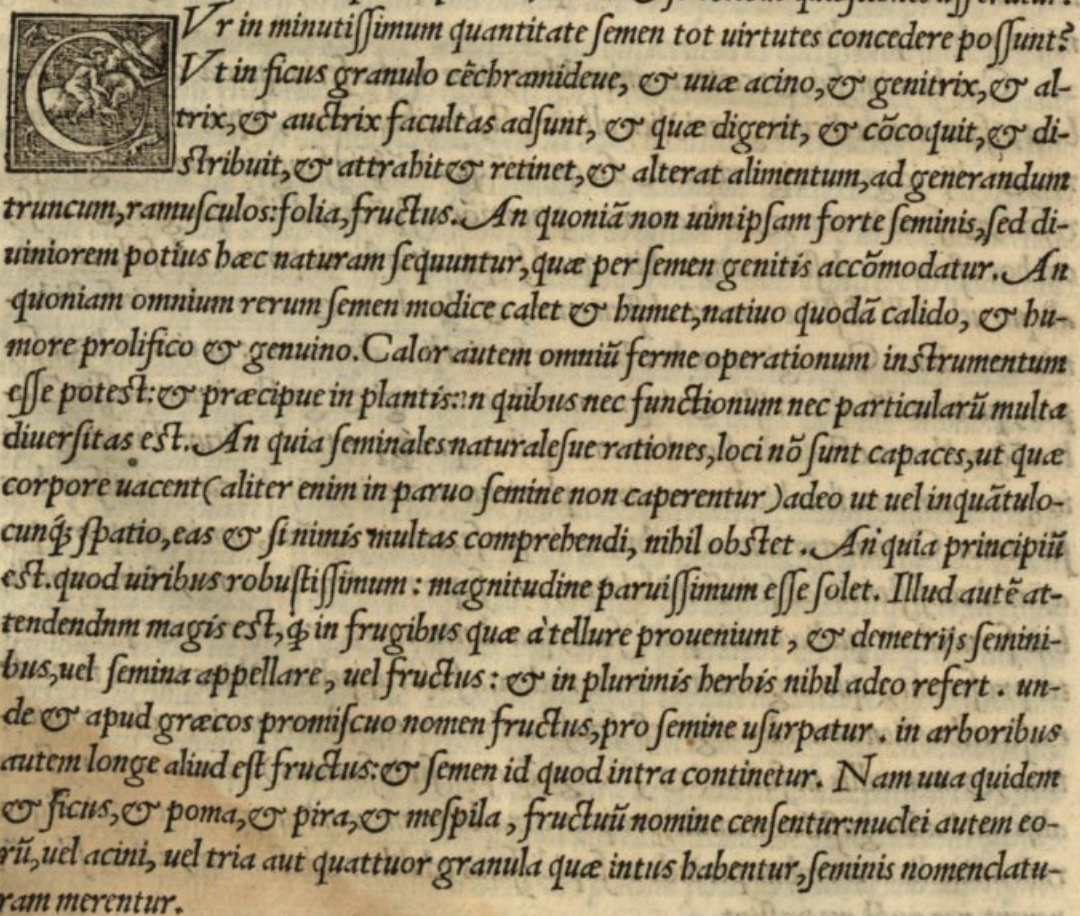 CVr in minutissimum quantitate semen tot uirtutes concedere possunt?
Vt in ficus granulo cẽchramideue, & uuæ acino, & genitrix, & al-
trix, & auctrix facultas adsunt, & quæ digerit, & cõcoquit, & di-
stribuit, & attrahit & retinet, & alterat alimentum, ad generandum
truncum, ramusculos: folia, fructus. An quoniã non uim ipsam forte seminis, sed di-
uiniorem potius hæc naturam sequuntur, quæ per semen genitis accõmodatur. An
quoniam omnium rerum semen modice calet & humet, natiuo quodã calido, & hu-
more prolifico & genuino. Calor autem omniũ ferme operationum instrumentum
esse potest: & præcipue in plantis: in quibus nec functionum nec particularũ multa
diuersitas est. An quia seminales naturalesue rationes, loci nõ sunt capaces, ut quæ
corpore uacent (aliter enim in paruo semine non caperentur) adeo ut uel inquãtulo-
cunq; spatio, eas & si nimis multas comprehendi, nihil obstet. An quia principiũ
est. quod uiribus robustissimum: magnitudine paruissimum esse solet. Illud autẽ at-
tendendnm magis est, ꝙ in frugibus quæ à tellure proueniunt, & demetrijs semini-
bus, uel semina appellare, uel fructus: & in plurimis herbis nihil adeo refert. un-
de & apud græcos promiscuo nomen fructus, pro semine usurpatur. in arboribus
autem longe aliud est fructus: & semen id quod intra continetur. Nam uua quidem
& ficus, & poma, & pira, & mespila, fructuũ nomine censentur: nuclei autem eo-
rũ, uel acini, uel tria aut quattuor granula quæ intus habentur, seminis nomenclatu-
ram merentur.